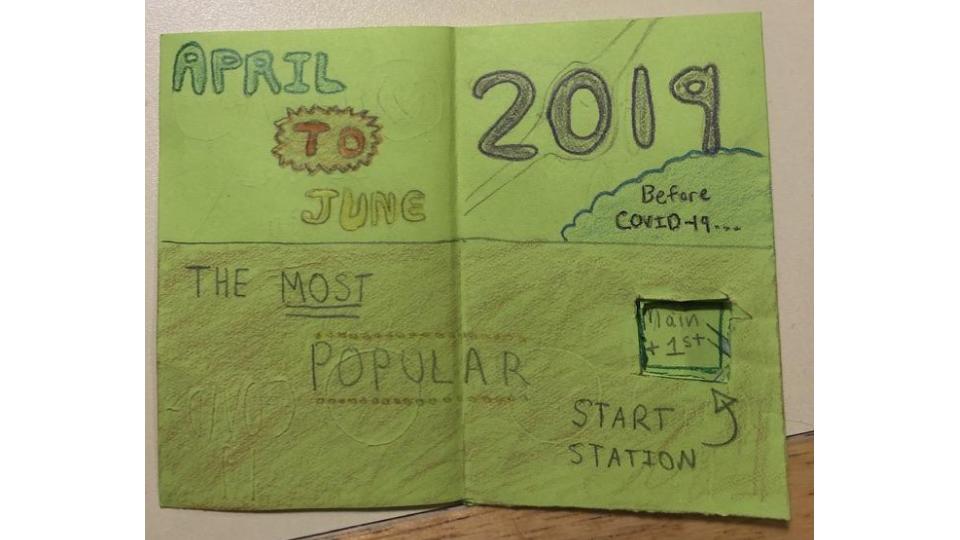 APRIL
TO
JUNE
2019
Before
COVID-19...
THE MOST
POPULAR
Main
+ 1st
START
STATION